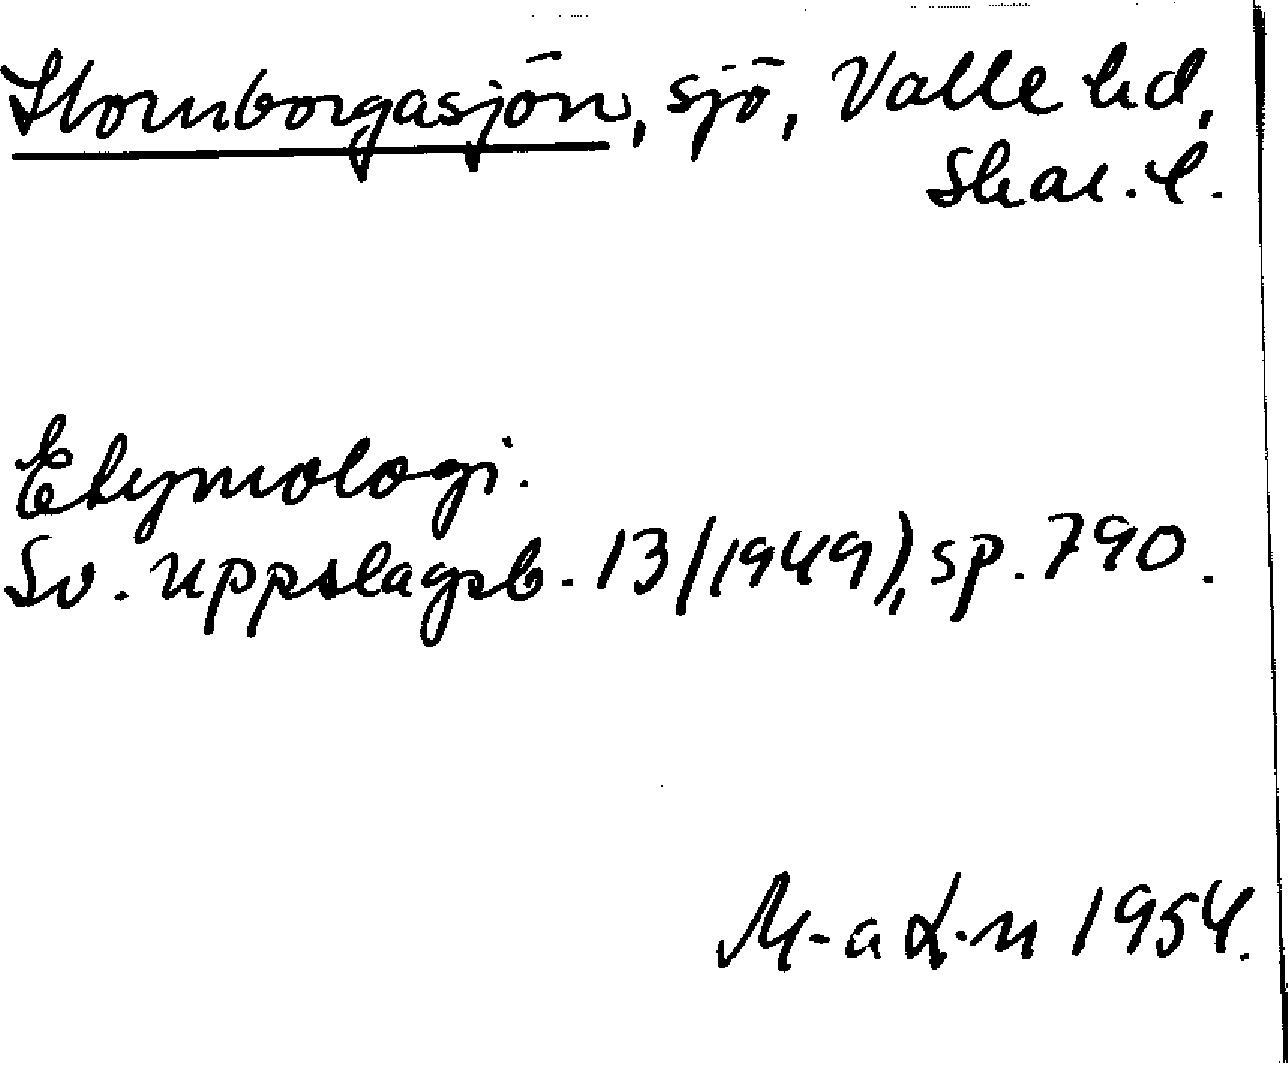 Hornborgasjön, sjö, Valle hd,
Skar. l.
Etymologi.
Sv. uppslagsb. 13/(1949), sp. 790.
M-a L-n 1954.